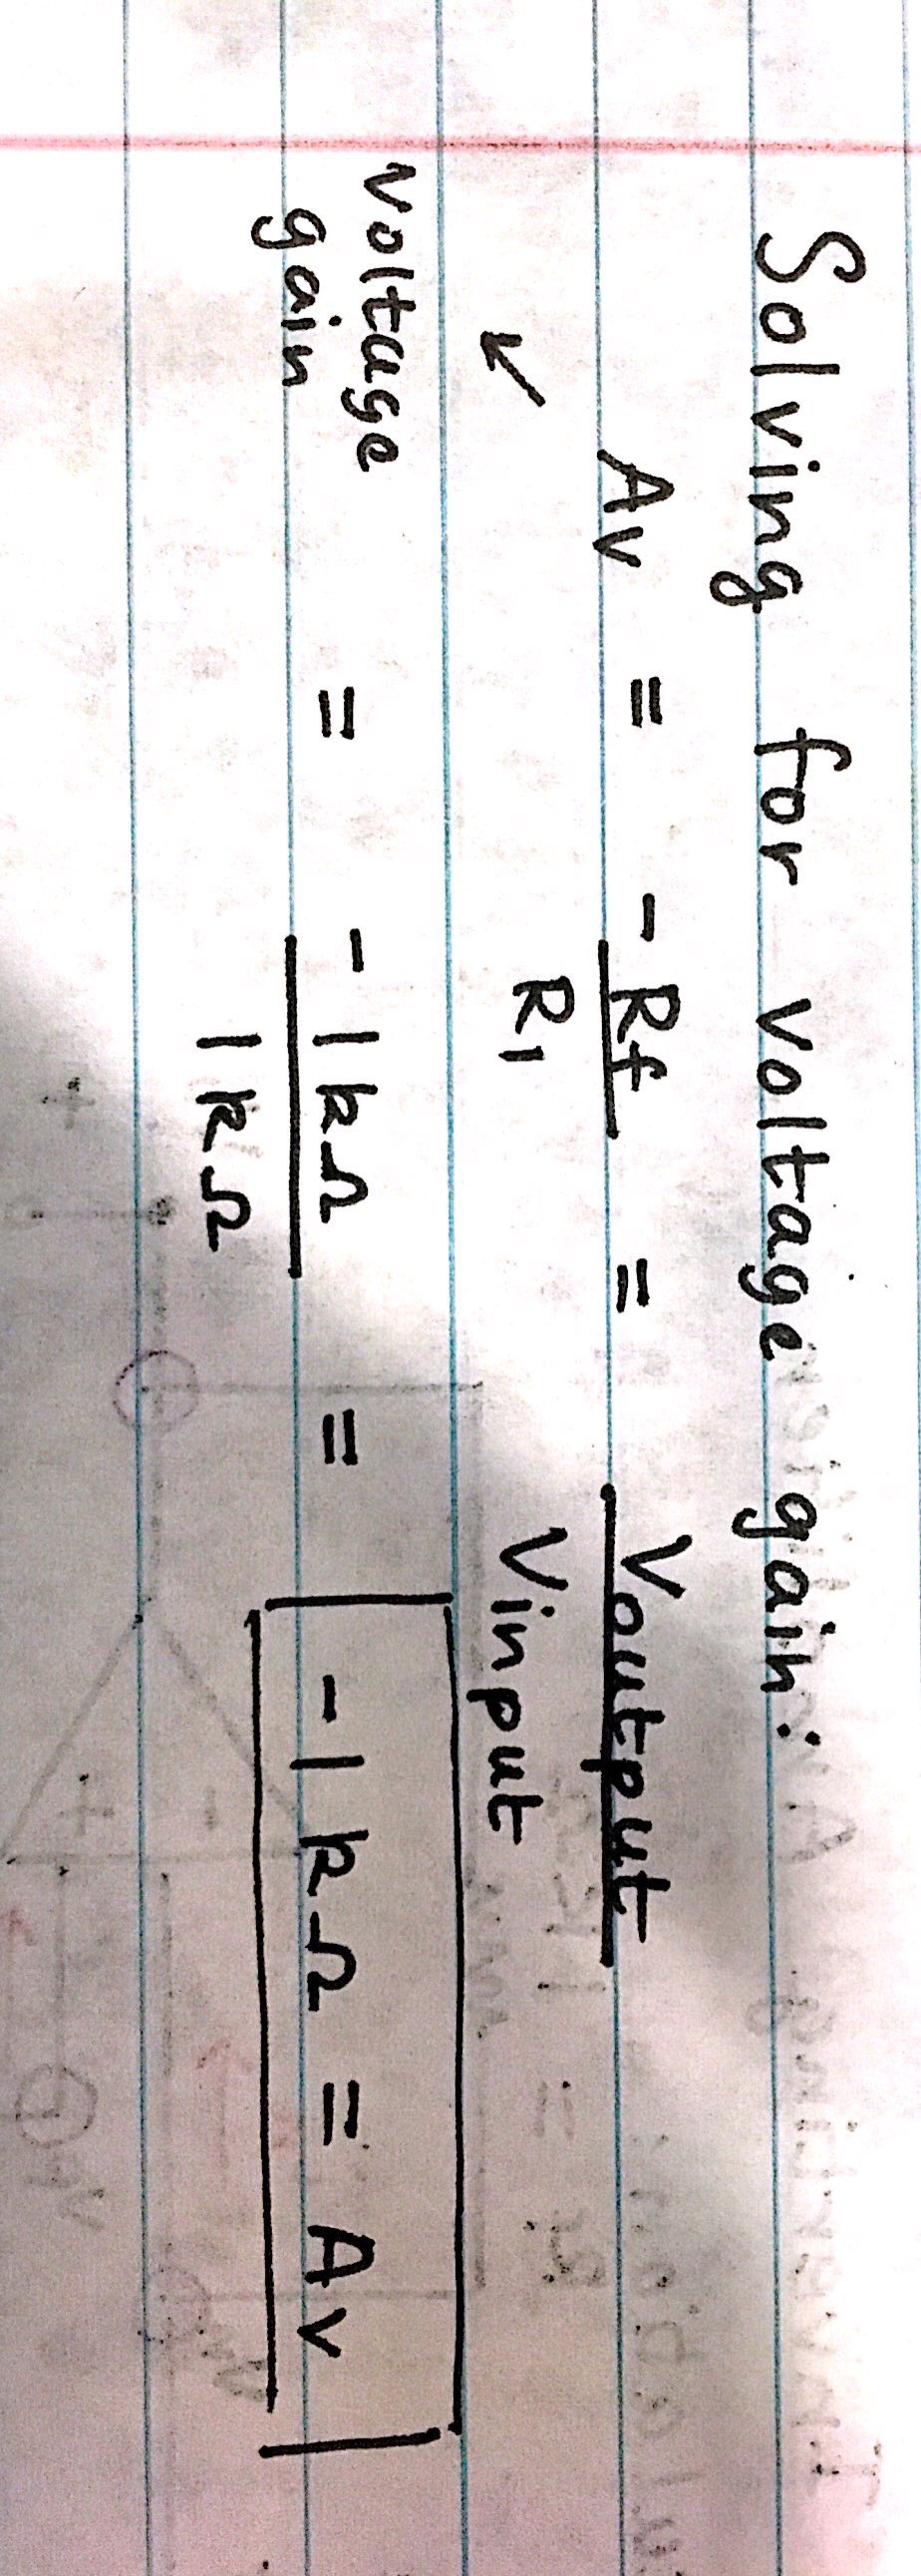 Solving for voltage gain:
Av = -Rf/R1 = Voutput/Vinput
↙
voltage gain = -1kΩ/1kΩ = -1kΩ = Av